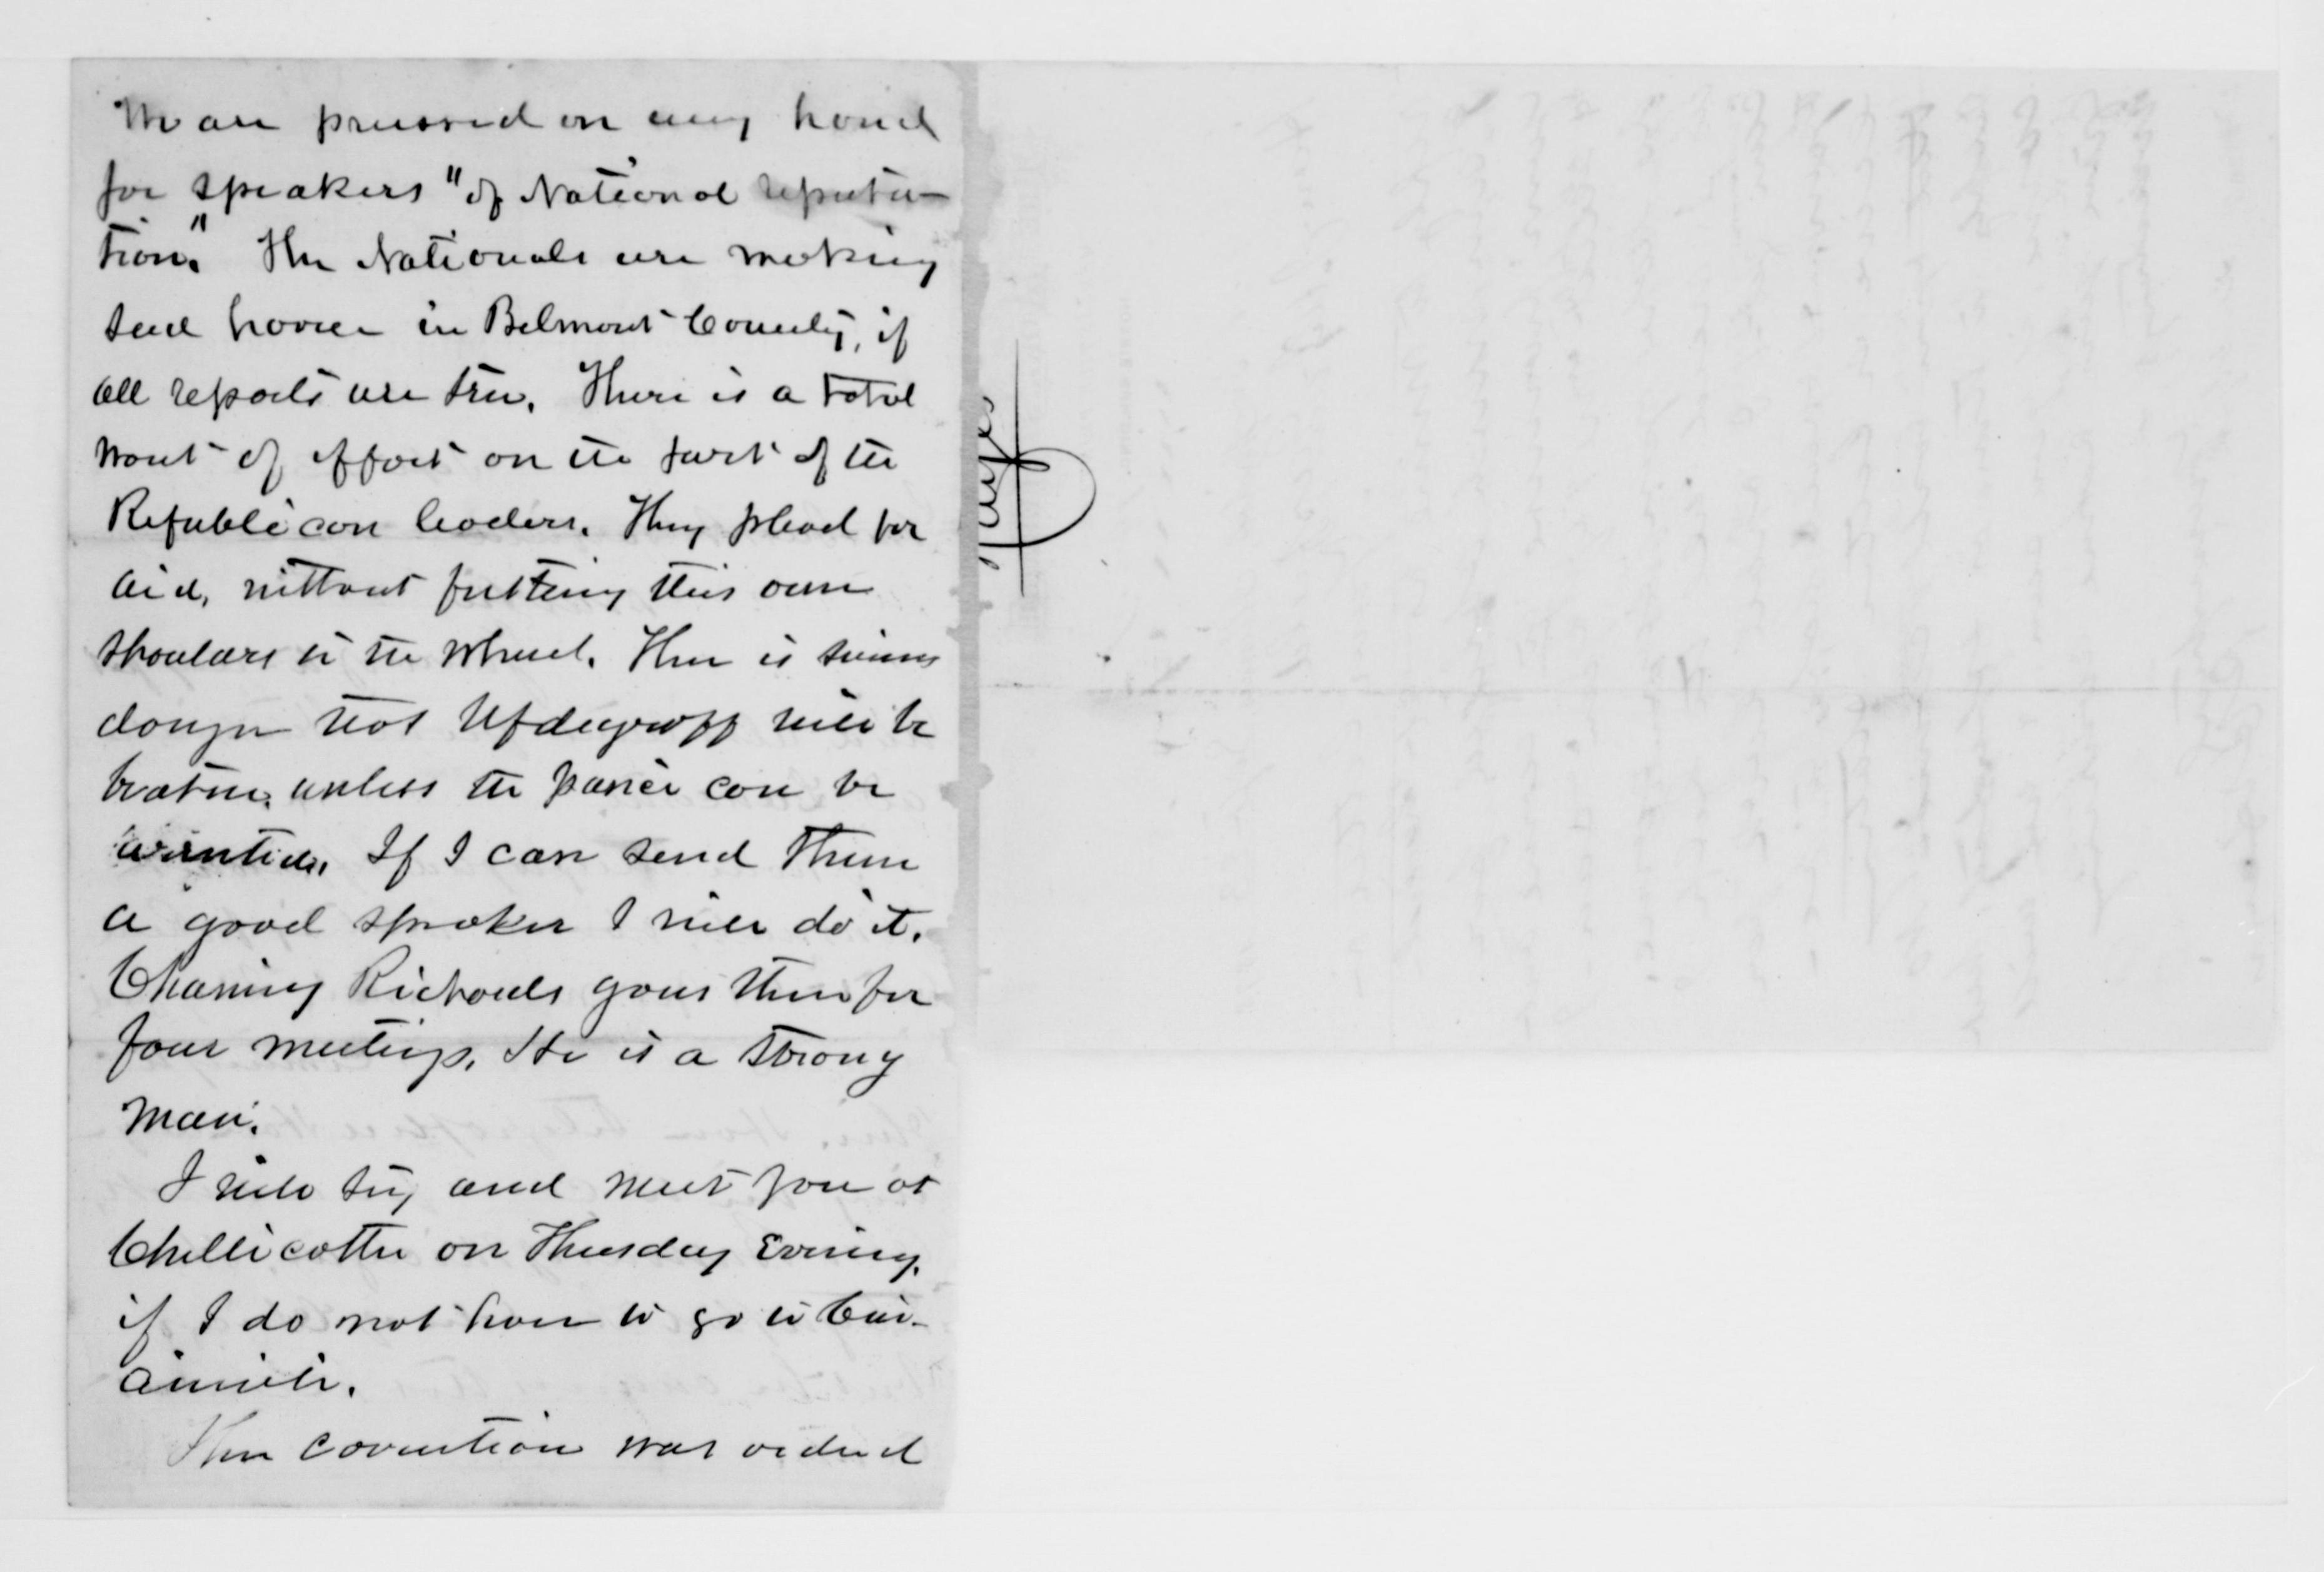 We are pressed on every hand
for speakers "of National reputa-
tion." The Nationals are making
sad havoc in Belmont County, if
all reports are true. There is a total
want of effort on the part of the
Republican leaders. They plead for
aid, without putting their own
shoulders to the wheel. There is serious
danger that Updegraff will be
beaten, unless the panic can be
averted. If I can send them
a good speaker I will do it.
Channing Richards goes there for
four meetings. He is a strong
man.
I will try and meet you at
Chillicothe on Thursday Evening,
if I do not have to go to Cin-
cinnati.
The convention was ordered
Hayes